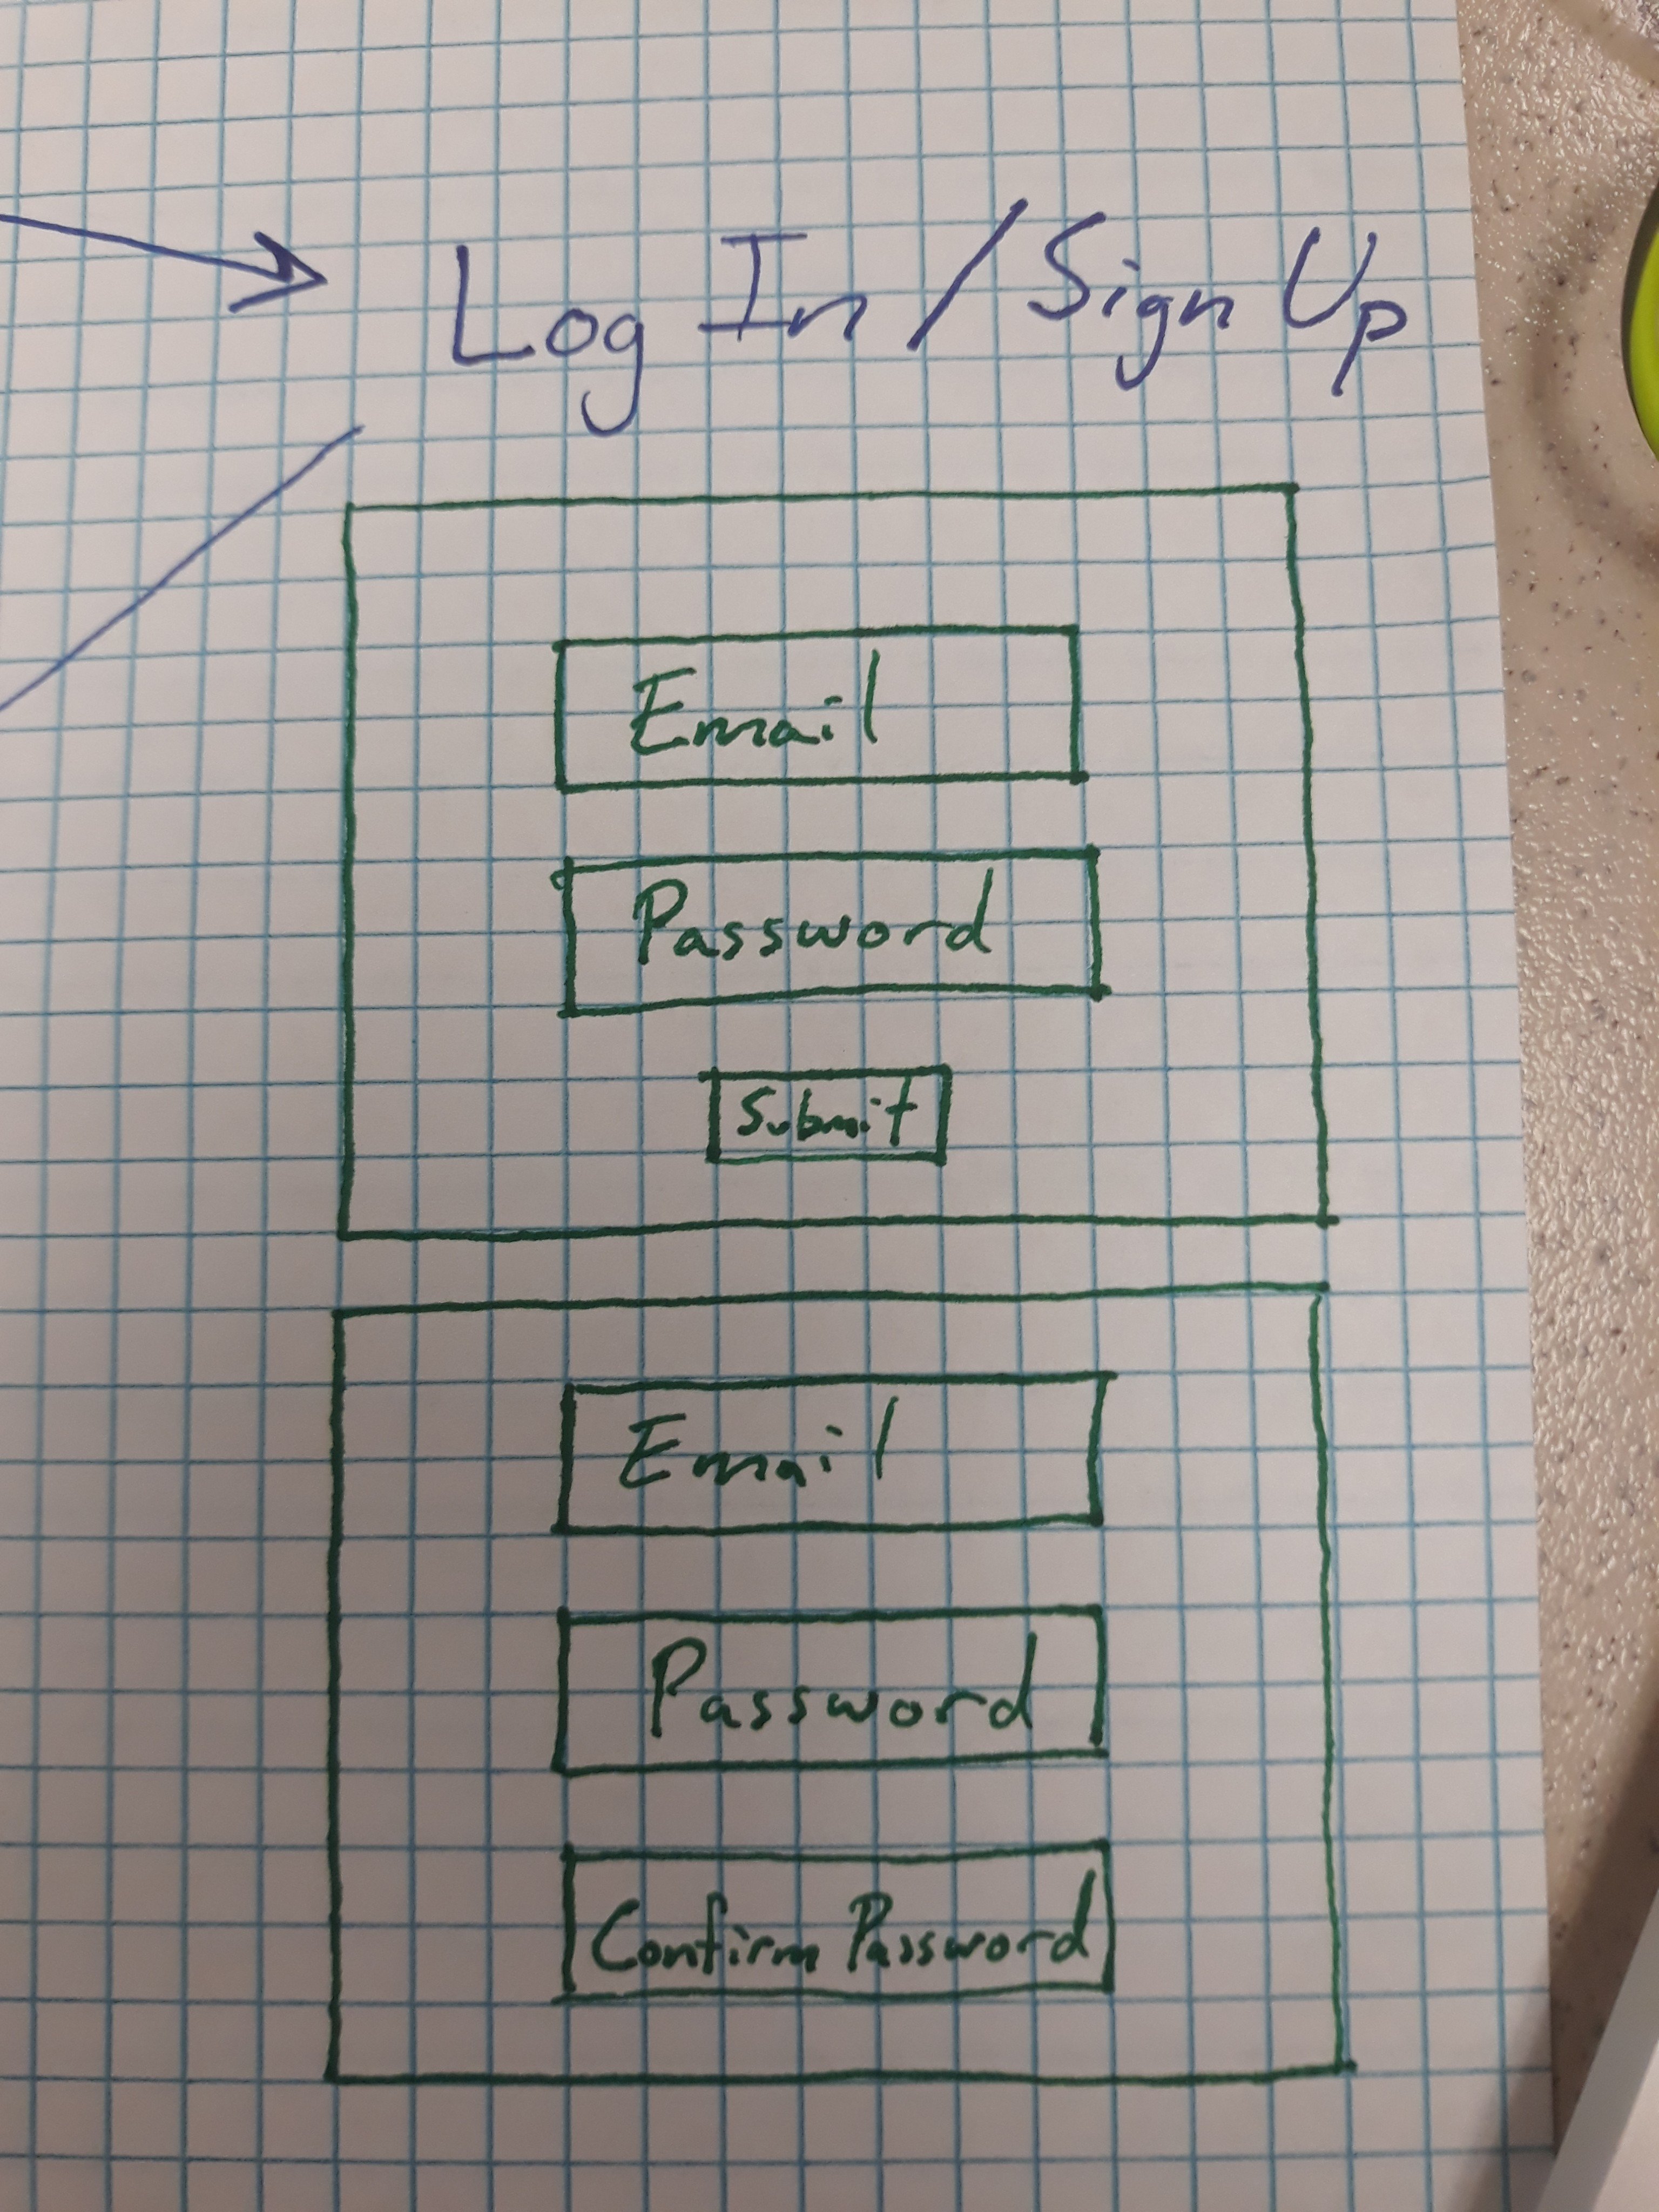 Log In / Sign Up
Email
Password
Submit
Email
Password
Confirm Password